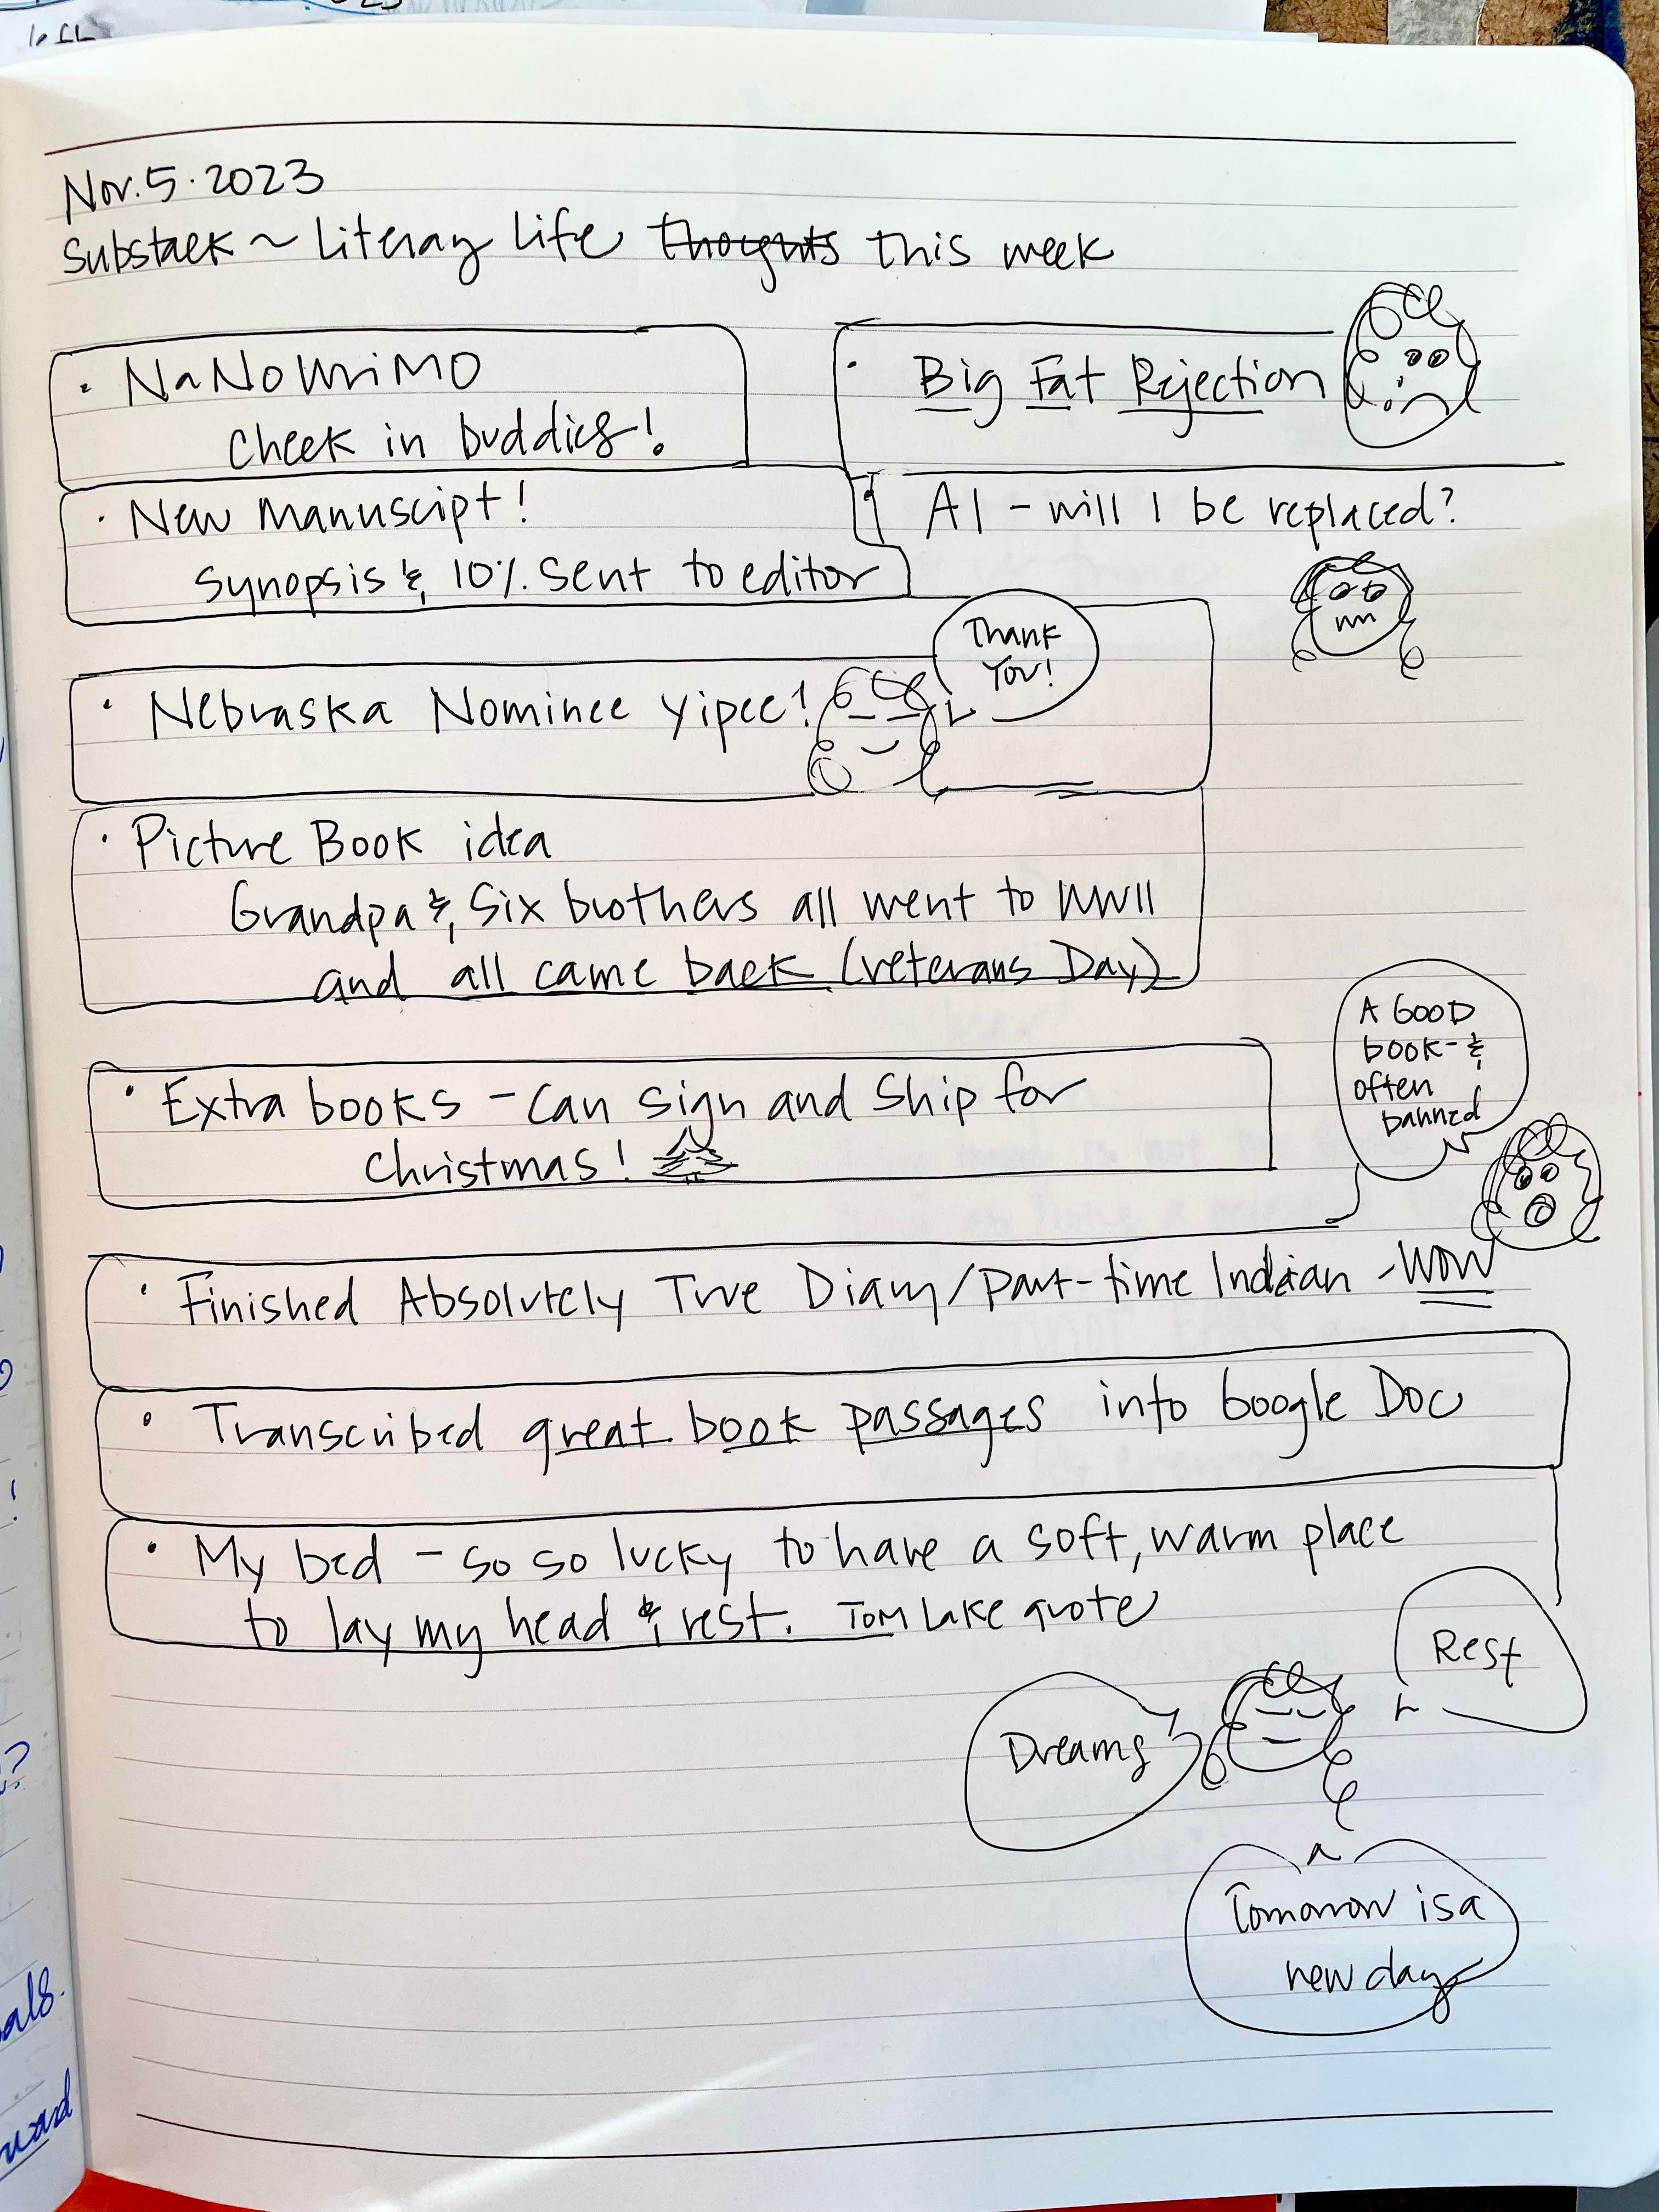 left
Nov. 5. 2023
Substack ~ Literay Life thoughts this week
• NaNoWriMO
Check in buddies!
• Big Fat Rejection
• New Manuscipt!
Synopsis & 10% sent to editor
• AI - will I be replaced?
• Nebraska Nominee Yipee!
Thank
You!
• Picture Book idea
Grandpa & Six brothers all went to WWII
and all came back (Veterans Day)
• Extra books - Can sign and ship for
Christmas!
A GOOD
book- &
often
banned
• Finished Absolutely True Diary/Part-time Indian - WOW
• Transcribed great book passages into Google Doc
• My bed - so so lucky to have a soft, warm place
to lay my head & rest. Tom Lake quote
Rest
Dreams
Tomorrow is a
new day